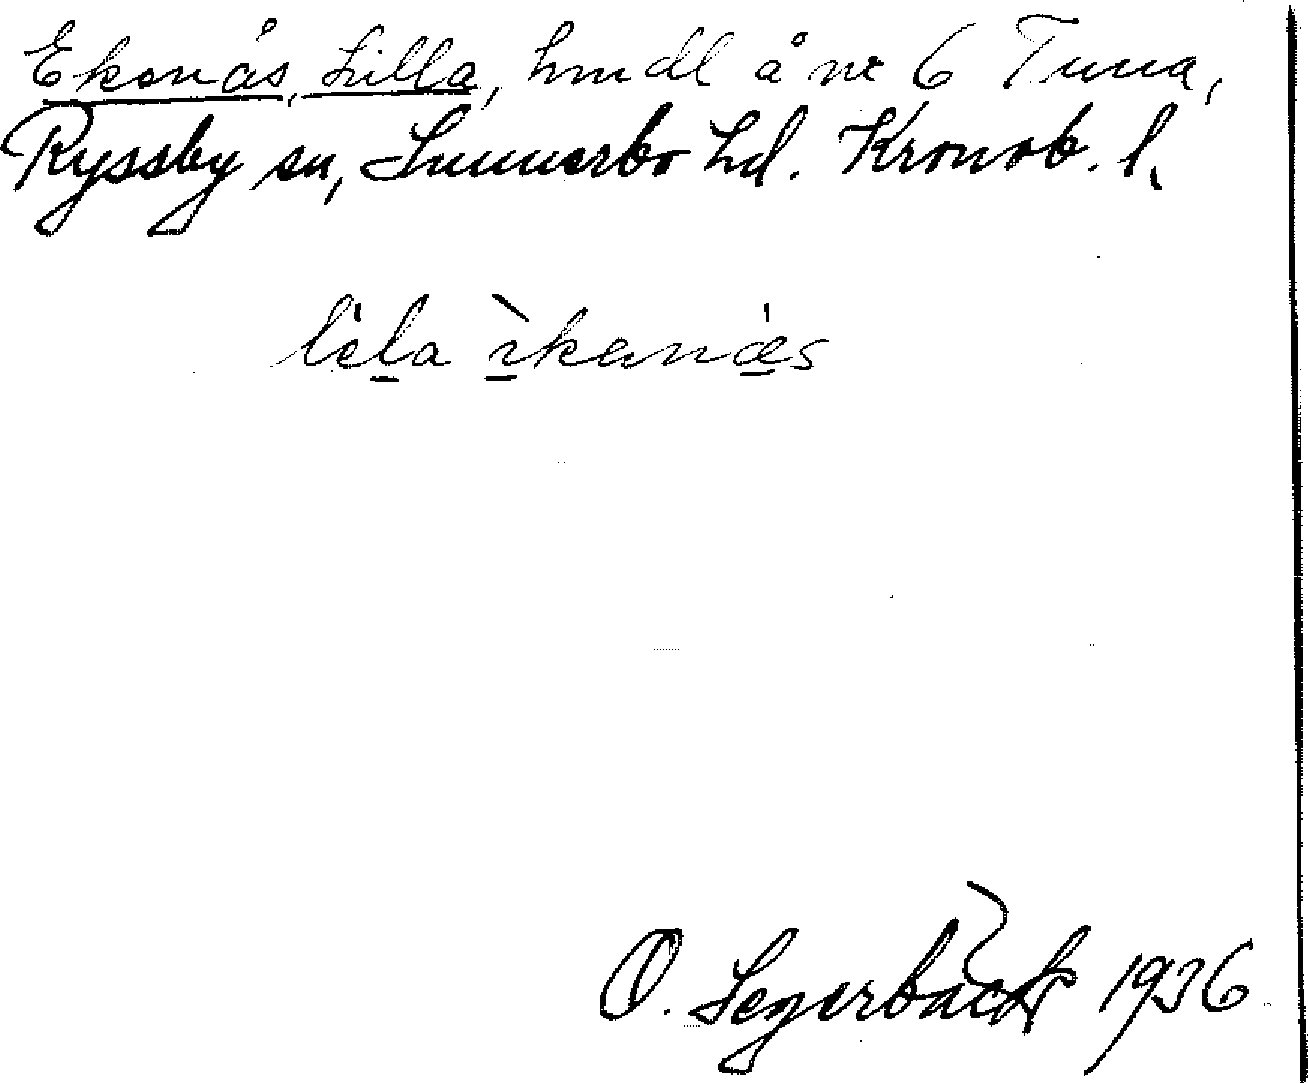 Ekenäs, Lilla, hmdl å nr 6 Tuna,
Ryssby sn, Sunnerbo hd. Kronob. l.
lela ikenäs
O. Segerbäck 1936